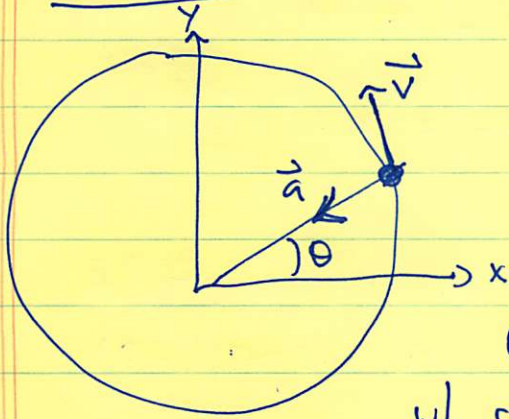 Y
v⃗
a⃗
θ
x
w/